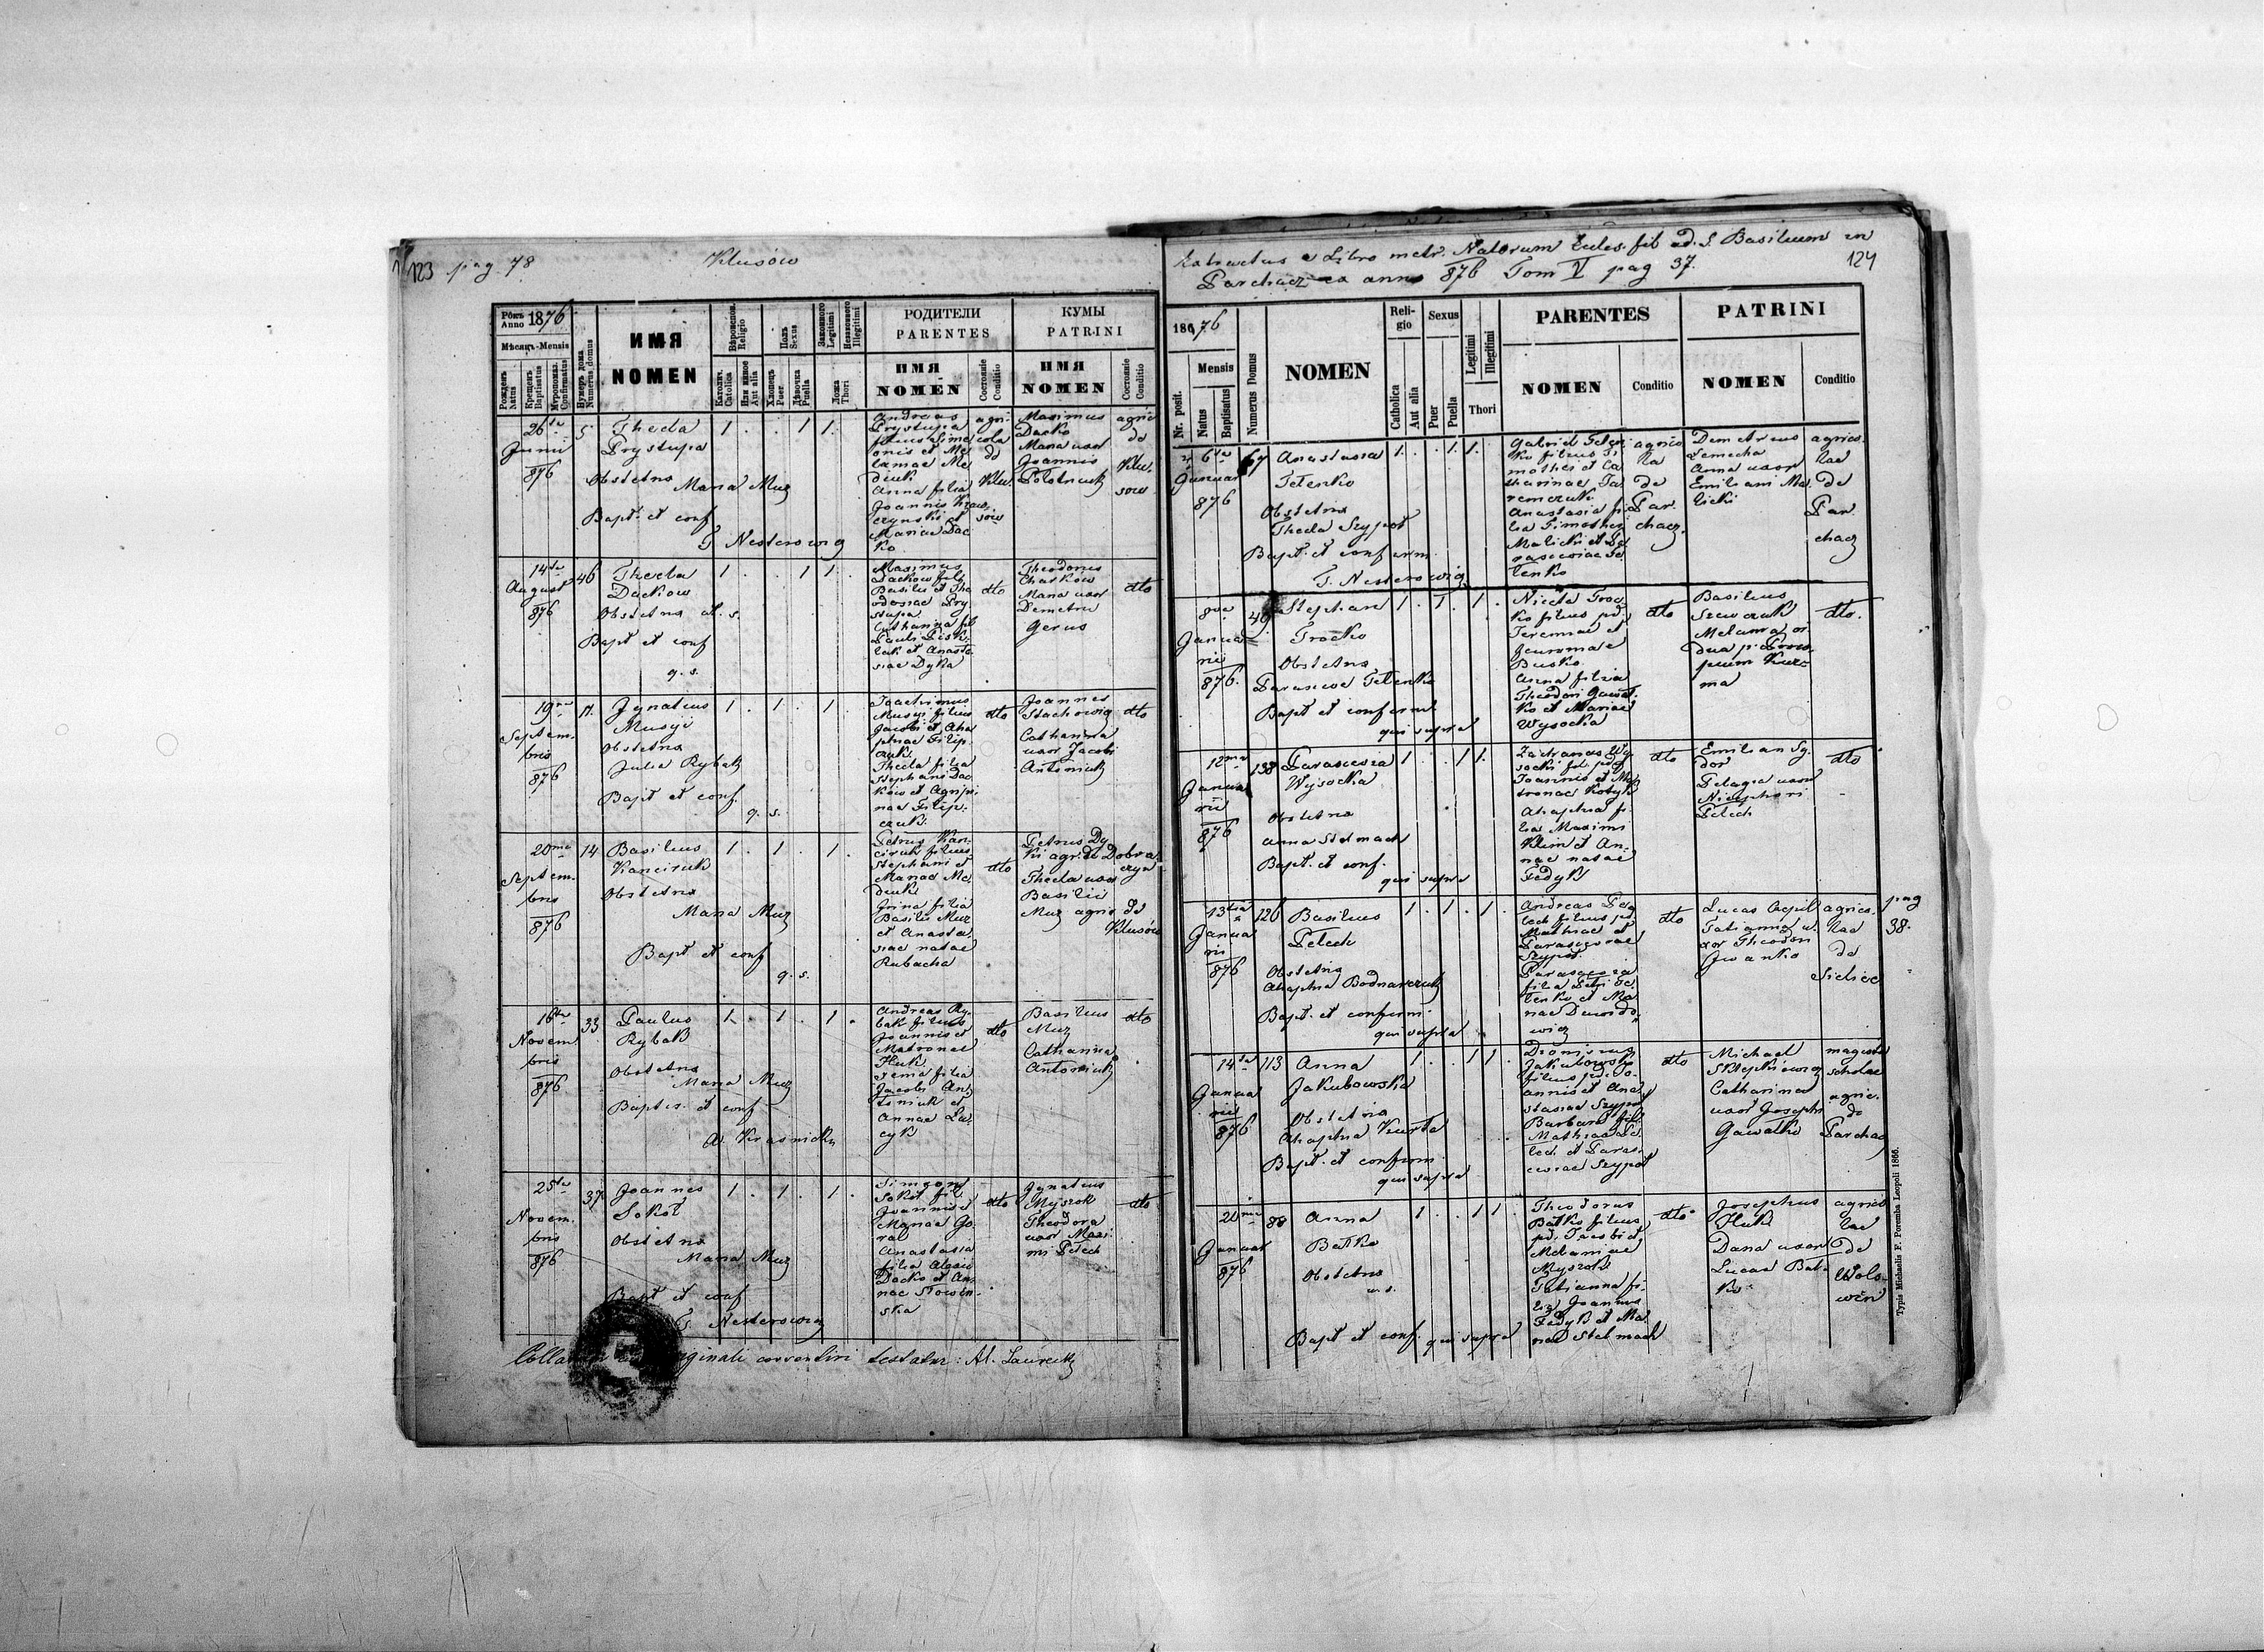 123 pag. 78
Klusów
Рôкъ
Anno 1876
Мѣсяцъ-Mensis
Рожденъ
Natus
Крещенъ
Baptisatus
Мѵропомаз.
Confirmatus
Нумеръ дома
Numerus domus
ИМЯ
NOMEN
Вѣроисповѣд.
Religio
Католич.
Catholica
Или иное
Aut alia
Полъ
Sexus
Хлопець
Puer
Дѣвочка
Puella
Законного
Legitimi
Незаконного
Illegitimi
Ложа
Thori
РОДИТЕЛИ
PARENTES
ИМЯ
NOMEN
Состояніе
Conditio
КУМЫ
PATRINI
ИМЯ
NOMEN
Состояніе
Conditio
26ta
Junii
876
5
Thecla
Prystupa
Obstetrix
Maria Muz
Bapt. et conf
T Nesterowicz
1 . . 1 1 .
Andreas
Prystupa
filius Sime
onis et Me
laniae Me
diuk
Anna filia
Joannis Kraw
czynski et
Mariae Dac
ko
agri
cola
de
Klu
sów
Maximus
Dacko
Maria uxor
Joannis
Połotniuk
agric
de
Klu
sow
14ta
August
876
46
Thecla
Dackow
Obstetrix ut. s.
Bapt et conf
q. s.
1 . . 1 1 .
Maximus
Dackow fil.
Basilii et The
odosiae Pry
stupa
Catharina fil
Pauli Pisk
lak et Anasta
siae Dyka
dto
Theodorus
Charkow
Maria uxor
Demetrii
Gerus
dto
19na
Septem.
bris
876
11.
Ignatius
Musyi
Obstetrix
Julia Rybak
Bapt et conf.
q. s.
1 . 1 . 1 .
Joachimus
Musyi filius
Jacobi et Aha
phiae Filip
czuk
Thecla filia
Stephani Dac
ków et Agripi
nae Filip.
czuk.
dto
Joannes
Stachowicz
Catharina
uxor Jacobi
Antoniuk
dto
20ma
Septem.
bris
876
14
Basilius
Kanciruk
Obstetrix
Maria Muz
Bapt et conf
q. s.
1 . 1 . 1 .
Petrus Kan
ciruk filius
Stephani et
Mariae Me
diuk
Irina filia
Basilii Muz
et Anasta
siae natae
Rubacha
dto
Petrus Dy
ki agr. de Dobra
czyn
Thecla uxor
Basilii
Muz agric de
Klusów
16ta
Novem
bris
876
33
Paulus
Rybak
Obstetrix
Maria Muz
Baptis. et conf
A. Krasnicki
1 . 1 . 1 .
Andreas Ry
bak filius
Joannis et
Matronae
Huk
Xenia filia
Jacobi An
toniuk et
Annae Lu
cyk
dto
Basilius
Muz
Catharina
Antoniuk
dto
25ta
Novem.
bris
876
37
Joannes
Sokół
Obstetrix
Maria Muz
Bapt et conf
T. Nesterowicz
1 . 1 . 1 .
Simeon
Sokół fil.
Joannis et
Mariae Go
ral
Anastasia
filia Alexii
Dacko et An
nae Słowin
ska
dto
Ignatius
Myszok
Theodora
uxor Maxi
mi Pelech
dto
originali concordari testatur: Al. Laurecki
Extractus e Libro metr. Natorum Eccles. fil ad. S. Basilium in
Parchacz ex anno 876 Tom V pag 37.
124
1876
Nr. posit.
Mensis
Natus
Baptisatus
Numerus Domus
NOMEN
Reli-
gio
Catholica
Aut alia
Sexus
Puer
Puella
Legitimi
Illegitimi
Thori
PARENTES
NOMEN
Conditio
PATRINI
NOMEN
Conditio
6ta
Januar
876
67
Anastasia
Tetenko
Obstetrix
Thecla Szypot
Bapt. et conferm
T. Nesterowicz
1 . . 1 1 .
Gabriel Teten
ko filius Ti
mothei et Ca
tharinae Ja
remczuk
Anastasia fi
lia Timothei
Malicki et Pa
rasceviae Te
tenko
agrico
lae
de
Par
chacz.
Demetrius
Semecha
Anna uxor
Emiliani Ma
licki
agrico
lae
de
Par
chacz
8va
Janua
rii
876.
49
Stephan
Trocko
Obstetrix
Parasceve Tetenko
Bapt et conferm
qui supra
1 . 1 . 1 .
Niceta Troc
ko filius pd
Jeremiae et
Busko.
Anna filia
Theodori Gawał
ko et Mariae
Wysocka
dto
Basilius
Szewczuk
Melania vi
dua p. Proco
pium Kuz
ma
dto.
12ma
Janua
rii
876
138
Parascevia
Wysocka
Obstetrix
Anna Stelmach
Bapt. et conf.
qui supra
1 . . 1 1.
Zacharias Wy
socki fil. pdf
Joannis et Ma
tronae Kotyk
Ahaphia fi
lia Maximi
Klim et An
nae natae
Fedyk
dto
Emilian Sy.
dor
Pelagia uxor
Nicephori
Pelech
dto
13tia
Janua
rii
876
126
Basilius
Pelech
Obstetrix
Ahaphia Bodnarczuk
Bapt. et conferm.
qui supra
1 . 1 . 1 .
Andreas Pe
lech filius pd
Mathiae et
Parasceviae
Szypot.
Parascevia
filia Petri Te
tenko et Ma
riae Dawido
wicz
dto
Lucas Czepil
Tatianna u.
xor Theodori
Iwanko
agrico.
lae
de
Sielec
pag
38.
14ta
Janua
rii
876
113
Anna
Jakubowska
Obstetrix
Ahaphia Kurta
Bapt. et conferm.
qui supra
1 . . 1 1 .
Dionisius
Jakubowski
filius pd. Jo.
annis et Ana
stasiae Szypot
Barbara fil.
Mathiae Pe
lech et Paras.
ceviae Szypot
dto
Michael
Skłepkiewicz
Catharina
uxor Josephi
Gawałko
magister
scholae
agric.
de
Parchacz
20ma
Januar
876
88
Anna
Batko
Obstetrix
u. s.
Bapt et conf. qui supra
1 . . 1 1 .
Theodorus
Batko filius
pd. Jacobi et
Melaniae
Myszok
Tatianna fi
lia Joannis
Fedyk et Ma
riae Stelmach
dto
Josephus
Huk
Daria uxor
Lucae Bat
ko
agrico
lae
de
Wolo
win
Typis Michaelis F. Poremba Leopoli 1866.